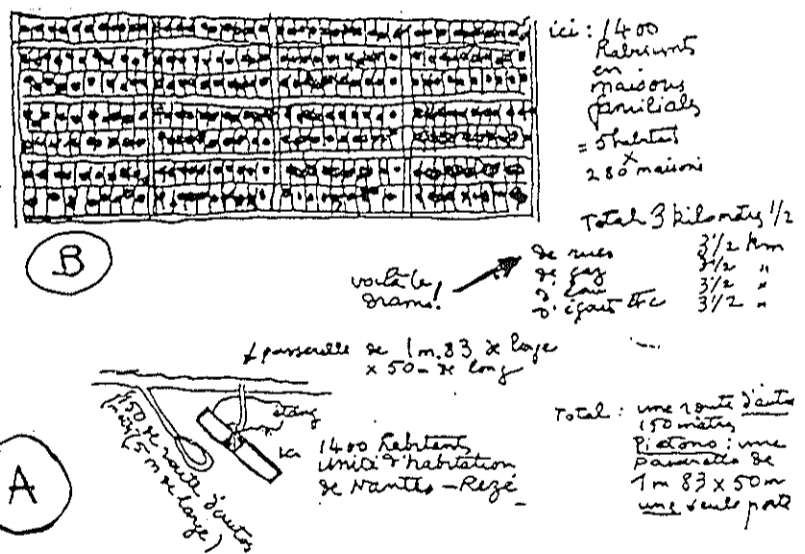 ici : 1400
habitants
en
maisons
familiales
= 5 habitants
x
280 maisons
Total 3 kilomètres 1/2
de rues 3 1/2 km
de gaz 3 1/2 "
d'eau 3 1/2 "
d'égouts etc 3 1/2 "
voilà le
drame!
B
passerelle de 1 m. 83 de large
x 50 m de long
150 m de route d'autos
(5 m de large)
étang
ici
1400 habitants
unité d'habitation
de Nantes - Rezé
A
Total : une route d'autos
150 mètres
Piétons : une
passerelle de
1 m 83 x 50 m
une seule porte